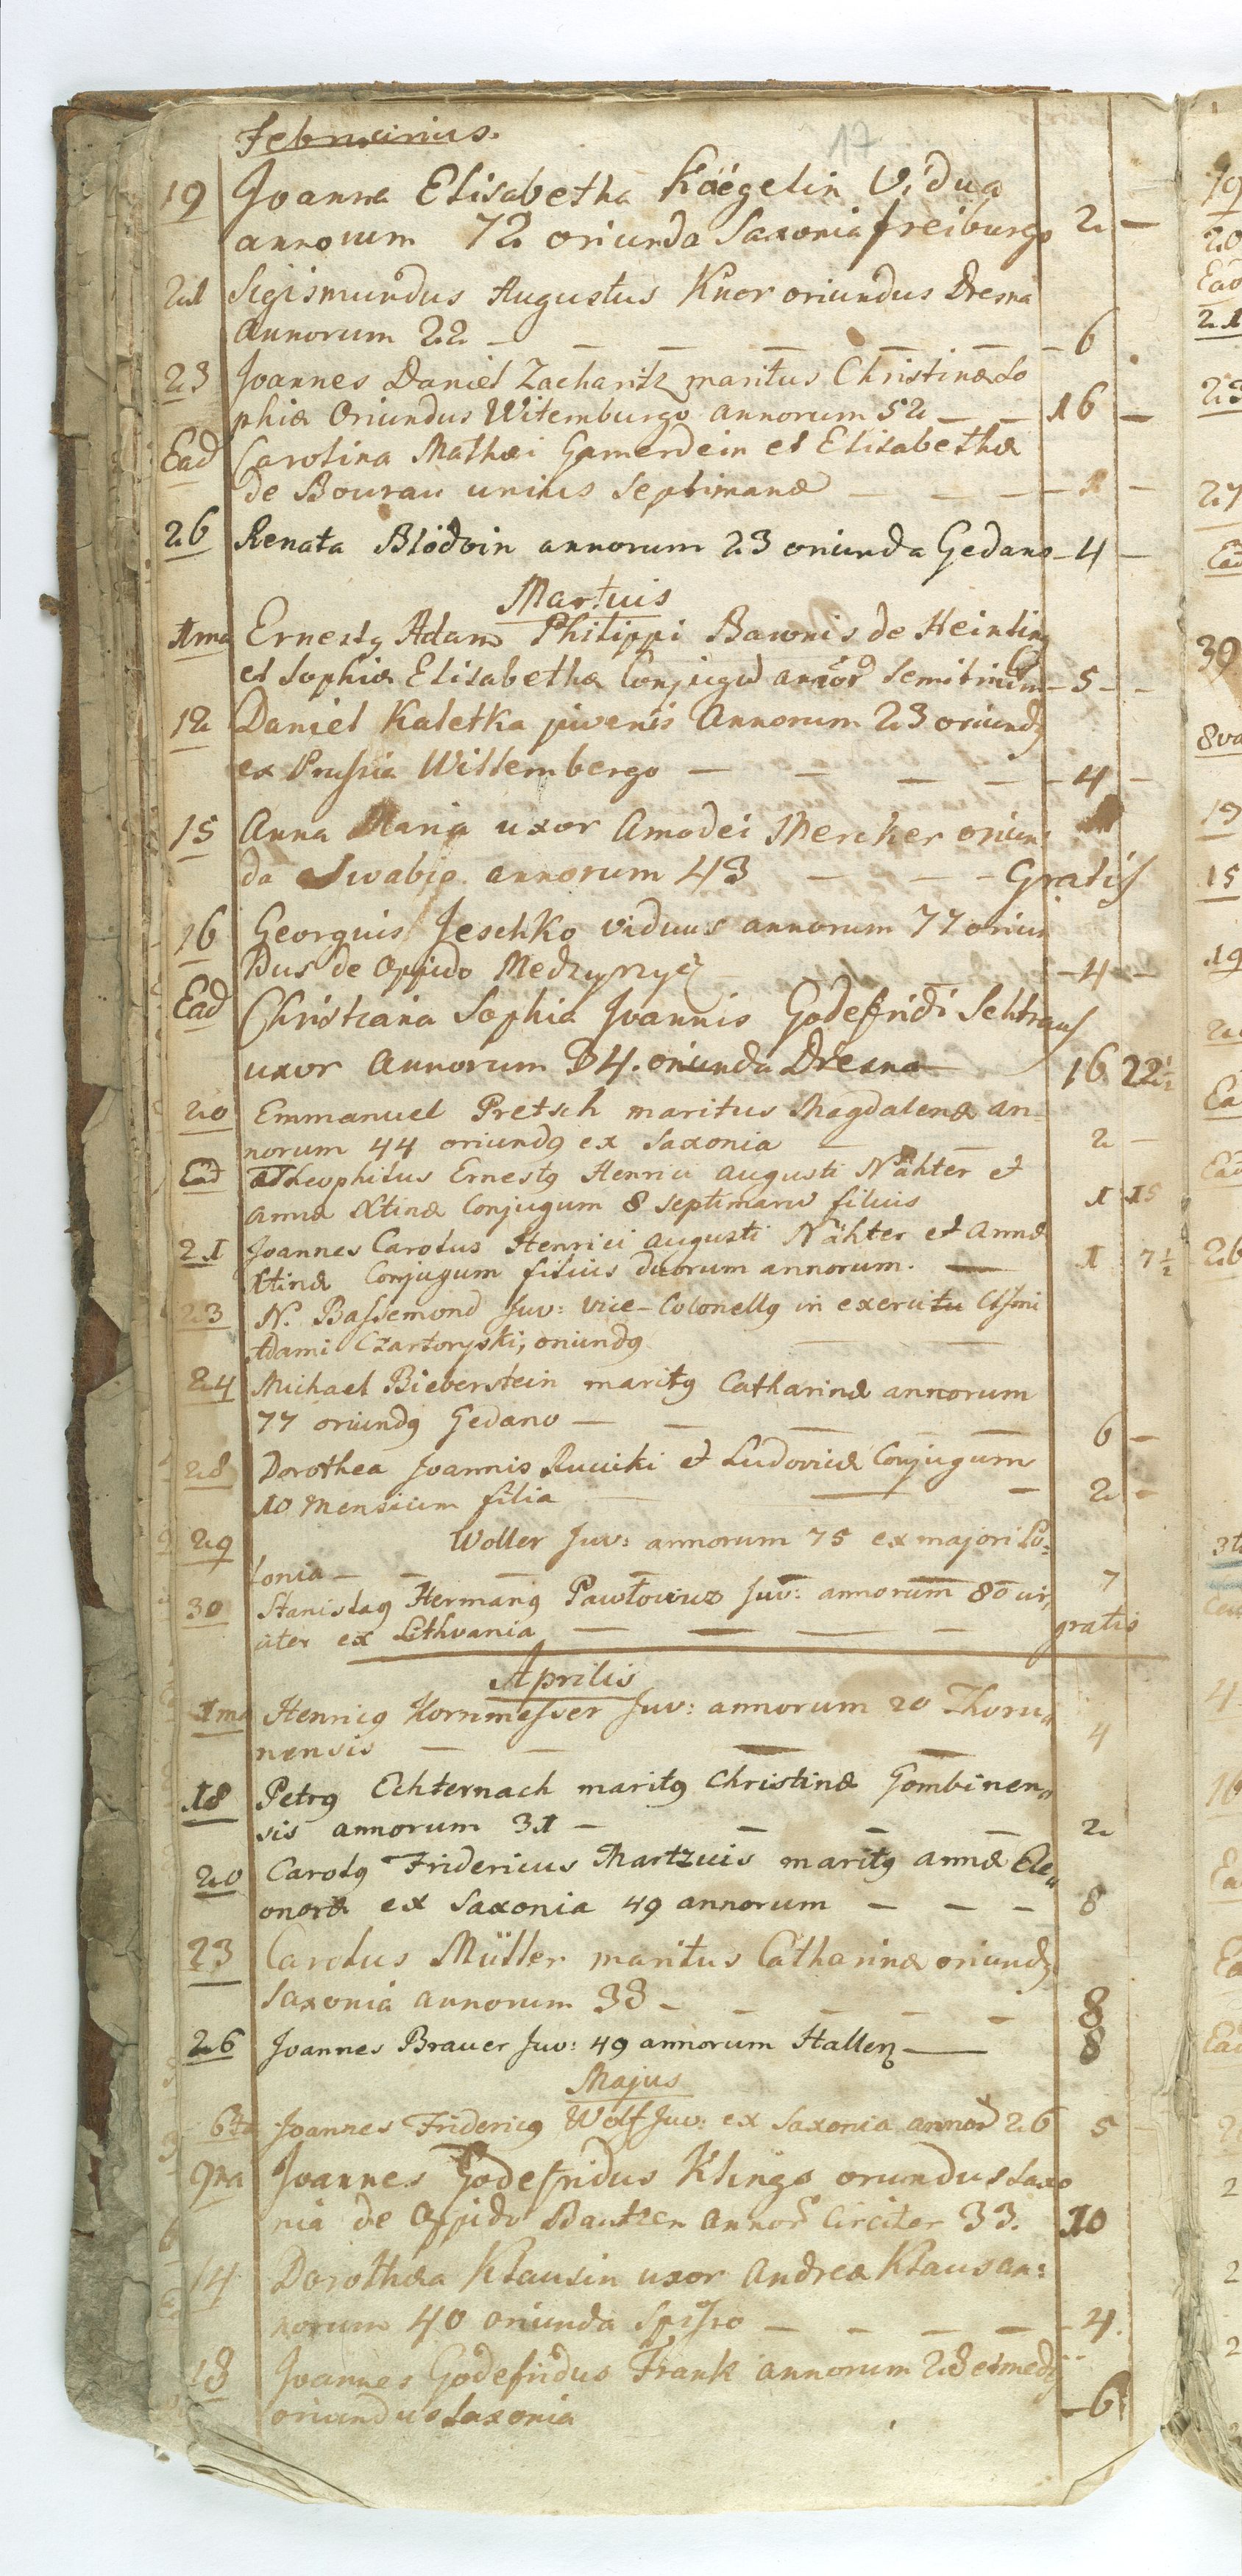 17
Februarius.
19 Joanna Elisabetha Käegelin Vidua
annorum 72 oriunda Saxonia freiburgo 2 —
21 Sigismundus Augustus Knor oriundus Dresna
Annorum 22 — — — — — 6
23 Joannes Daniel Zacharitz maritus Christinæ So
phiæ Oriundus Witemburgo annorum 52 — — 16 —
Ead Carolina Mathæi Gamerdein et Elisabethæ
de Bourau unius Septimanæ — — — 1 —
26 Renata Blödoin annorum 23 oriunda Gedano — 4 —
Martuis
1ma Ernestq Adam Philippi Baronis de Heinling
et Sophiæ Elisabethæ Conjugū annor — 5 — —
12 Daniel Kaletka juvenis Annorum 23 oriundq
ex Prussia Willembergo — — — — 4 —
15 Anna Maria uxor Amadei Mercker oriun:
da Swabia annorum 43 — — — Gratis
16 Georguis Jeschko viduus annorum 77 oriun
dus de Oppido Medzyrzyc — 4 —
Ead Christiana Sophia Joannis Godefridi Sehtraus
uxor Annorum 34. oriunda Dresna — 16 22½
20 Emmanuel Pretsch maritus Magdalenæ an-
norum 44 oriundq ex Saxonia — — 2 —
Ead Theophilus Ernestq Henrici Augusti Nähter et
annæ Xtinæ Conjugum 8 septimarū filius 1 15
21 Joannes Carolus Henrici augusti Nähter et annæ
Xtinæ Conjugum filius duorum annorum. — 1 7½
23 N. Bassemond Juv: vice-Colonellq in exercitu Clssmi
Adami Czartoryski, oriundq — —
24 Michael Bieberstein maritq Catharinæ annorum
77 oriundq Gedano — — — — 6 —
28 Dorothea Joannis Rucicki et Ludovicæ Conjugum
10 Mensium filia — — — 2 —
29 Woller Juv: annorum 75 ex majori Po:
lonia — — — — — — 7
30 Stanislaq Hermanq Pawłowicz Juv: annorum 80 cir,
citer ex Lithvania — — — — gratis
Aprilis
1ma Henricq Kornmesser Juv: annorum 20 Thoru,,
nensis — — — — 4
18 Petrq Echternach maritq Christinæ Gombinen,,
sis annorum 31 — — — — 2
20 Carolq Fridericus Martzuis maritq annæ Ele,,
onoræ ex Saxonia 49 annorum — — — 8
23 Carolus Müller maritus Catharinæ oriundq
Saxonia annorum 38 — — — — — 8
26 Joannes Brauer Juv: 49 annorum Hallen — 8
Majus
6ta Joannes Fridericq Wolf Juv: ex Saxonia annor 26 5
9na Joannes Godefridus Klinge orundus Saxo
nia de Oppido Bautzen annor circiter 33. 10
14 Dorothæa Klausin uxor Andreæ Klaus an:
norum 40 oriunda — — — — 4.
18 Joannes Godefridus Frank annorum 28 et medy
oriundus Saxonia — 6